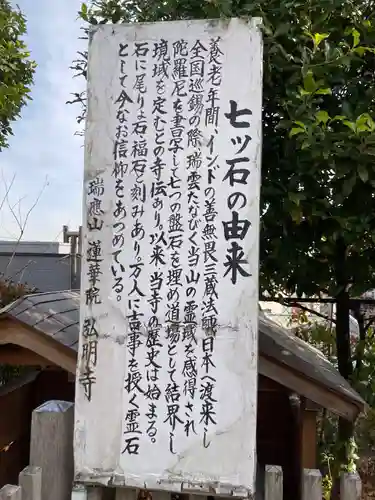 七ツ石の由来
養老年間、インドの善無畏三蔵法師、日本へ渡来し
全国巡錫の際、瑞雲たなびく当山の霊域を感得され
陀羅尼を書写して七つの盤石を埋め道場として結界し
境域を定めたとの寺伝あり。以来、当寺の歴史は始まる。
石に尾りょ石・福石と刻みあり。万人に吉事を授く霊石
として今なお信仰をあつめている。
瑞應山 蓮華院 弘明寺